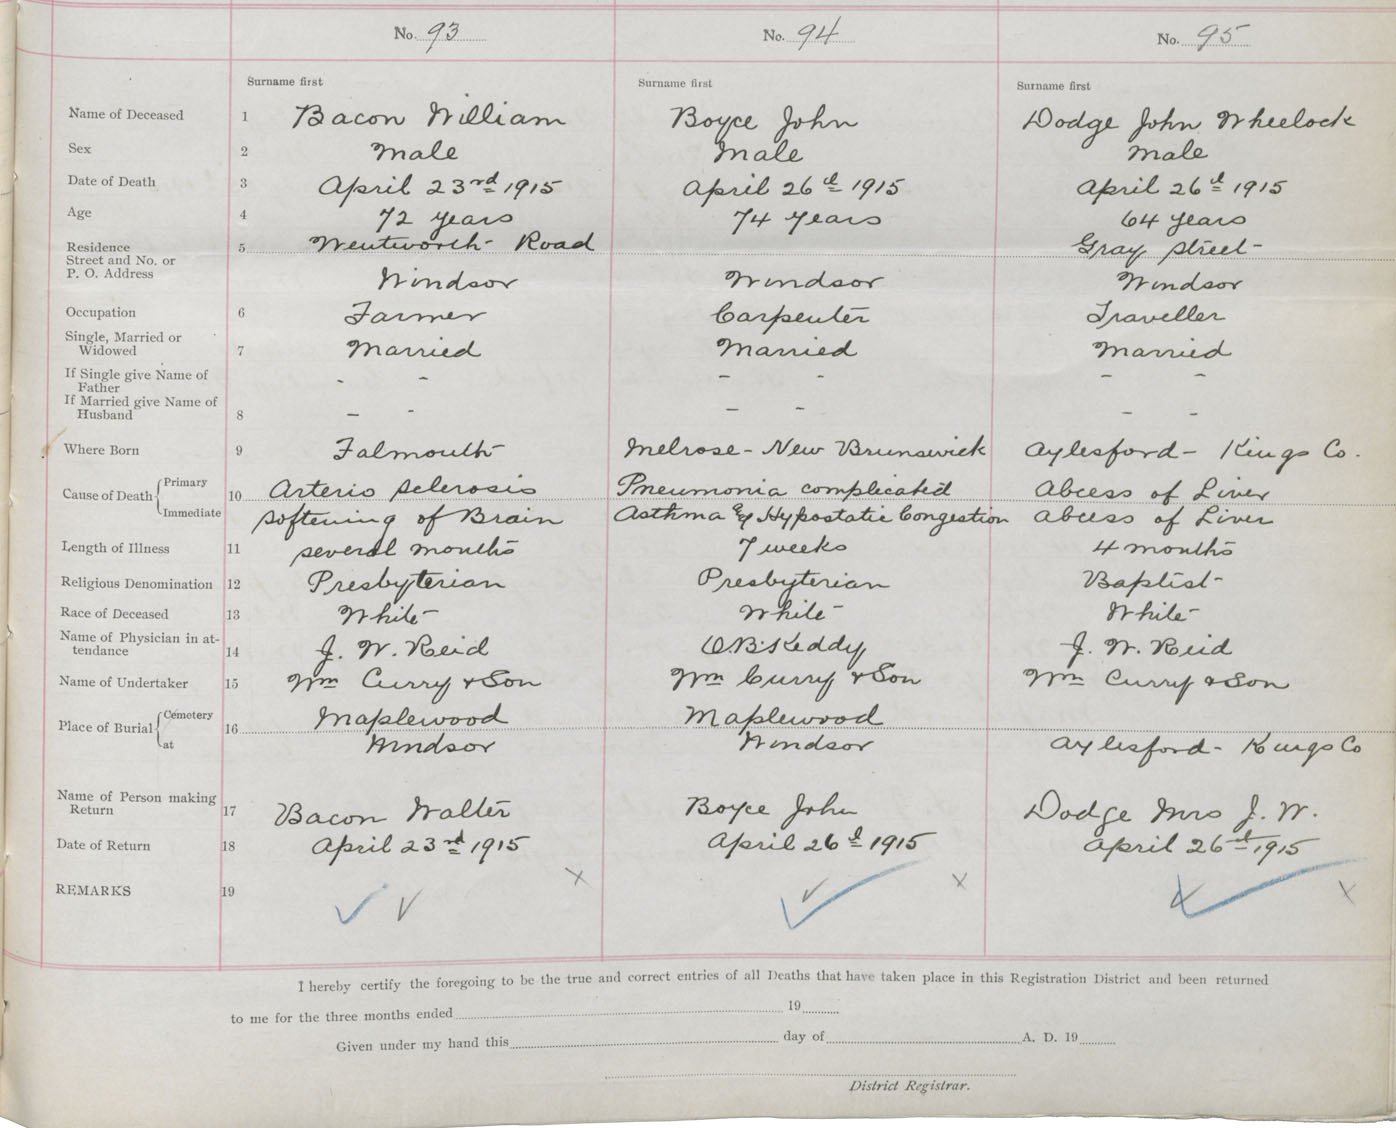 No. 93 No. 94 No. 95
Surname first Surname first Surname first
Name of Deceased 1 Bacon William Boyce John Dodge John Wheelock
Sex 2 Male Male Male
Date of Death 3 April 23rd 1915 April 26th 1915 April 26th 1915
Age 4 72 years 74 years 64 years
Residence 5 Wentworth Road Gray Street
Street and No. or
P. O. Address Windsor Windsor Windsor
Occupation 6 Farmer Carpenter Traveller
Single, Married or
Widowed 7 Married Married Married
If Single give Name of
Father - - - - - -
If Married give Name of
Husband 8 - - - - - -
Where Born 9 Falmouth Melrose - New Brunswick Aylesford - Kings Co.
Cause of Death { Primary 10 Arterio Sclerosis Pneumonia complicated Abcess of Liver
Immediate Softening of Brain Asthma & Hypostatic Congestion Abcess of Liver
Length of Illness 11 several months 7 weeks 4 months
Religious Denomination 12 Presbyterian Presbyterian Baptist
Race of Deceased 13 White White White
Name of Physician in at-
tendance 14 J. W. Reid O.B. Keddy J. W. Reid
Name of Undertaker 15 Wm Curry & Son Wm Curry & Son Wm Curry & Son
Place of Burial { Cemetery 16 Maplewood Maplewood
at Windsor Windsor Aylesford - Kings Co
Name of Person making
Return 17 Bacon Walter Boyce John Dodge Mrs J. W.
Date of Return 18 April 23rd 1915 April 26th 1915 April 26th 1915
REMARKS 19 ✓ ✓ x ✓ ✓ x ✓ ✓ x
I hereby certify the foregoing to be the true and correct entries of all Deaths that have taken place in this Registration District and been returned
to me for the three months ended 19
Given under my hand this day of A. D. 19
District Registrar.